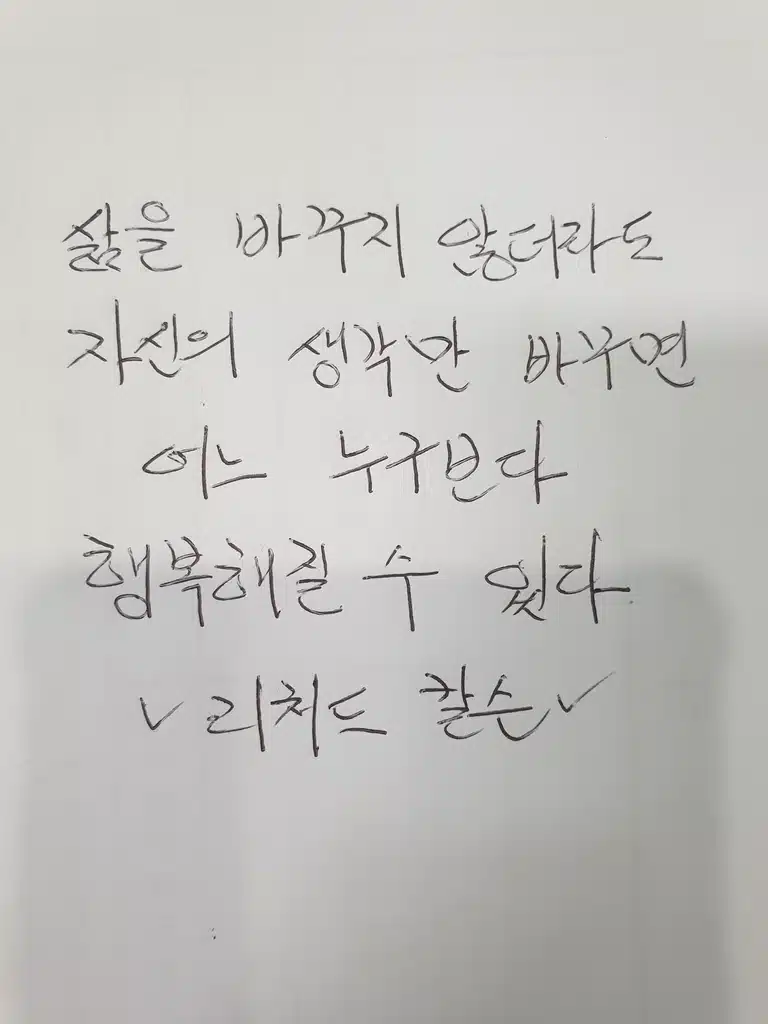 삶을 바꾸지 않더라도
자신의 생각만 바꾸면
어느 누구보다
행복해질 수 있다
✓ 리처드 칼슨 ✓